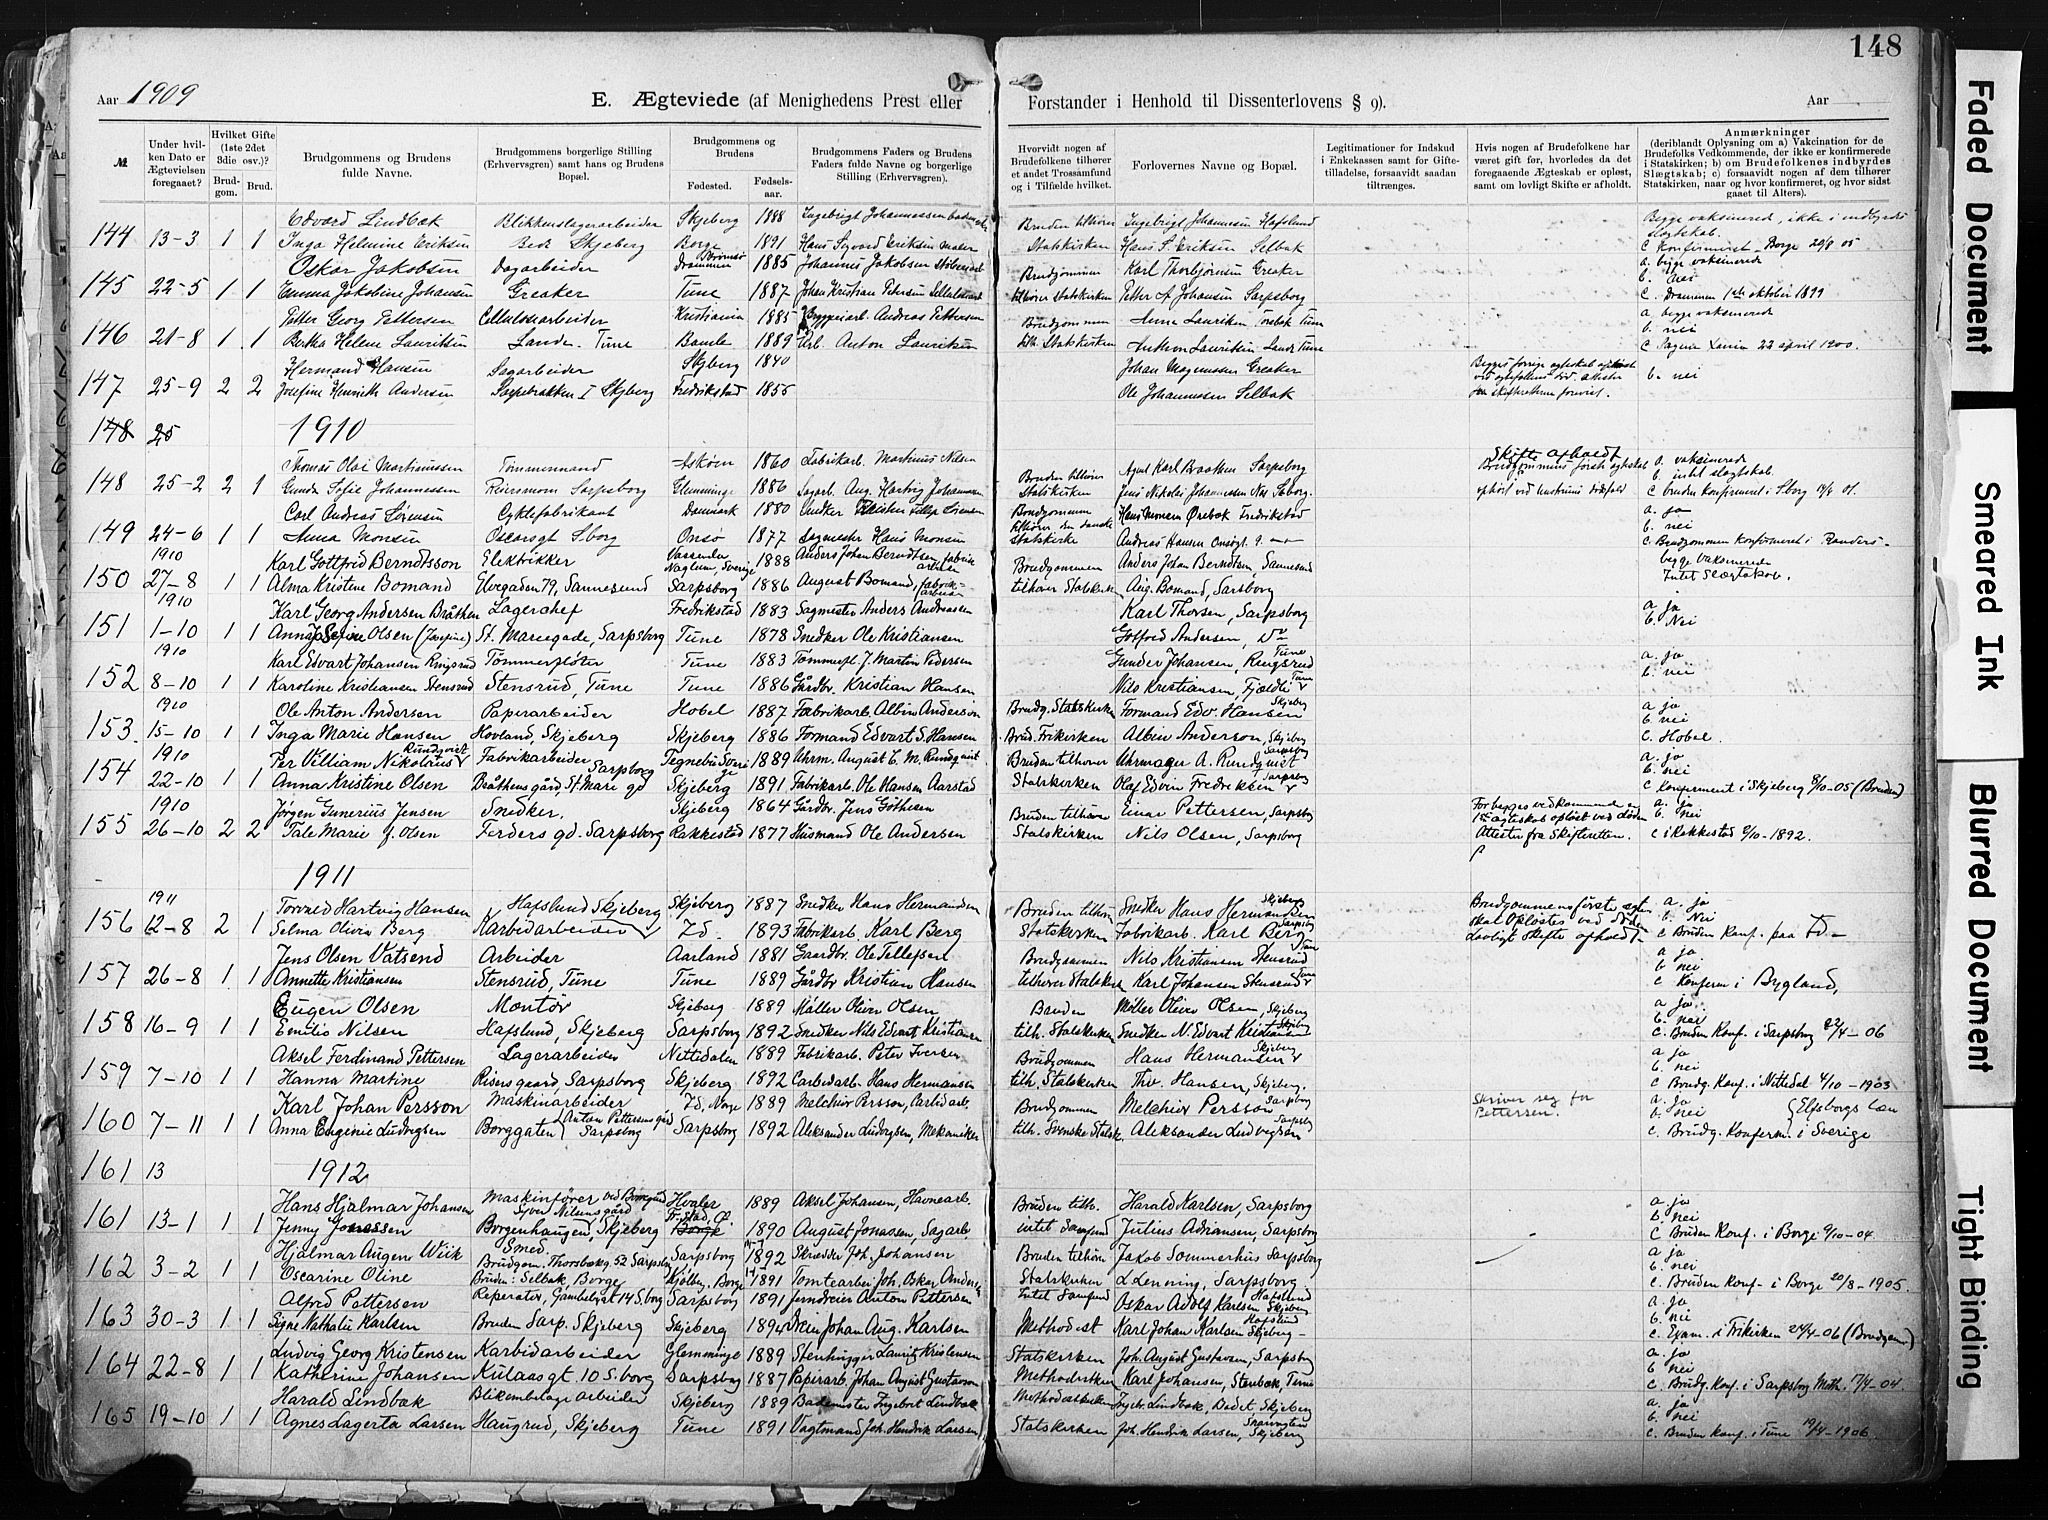 148
Aar 1909
E. Ægteviede (af Menighedens Prest eller Forstander i Henhold til Dissenterlovens § 9).
Aar
№
Under hvilken Dato er Ægtevielsen foregaaet?
Hvilket Gifte (1ste 2det 3die osv.)?
Brudgom.
Brud.
Brudgommens og Brudens fulde Navne.
Brudgommens borgerlige Stilling (Erhvervsgren) samt hans og Brudens Bopæl.
Brudgommens og Brudens
Fødested.
Fødselsaar.
Brudgommens Faders og Brudens Faders fulde Navne og borgerlige Stilling (Erhvervsgren).
Hvorvidt nogen af Brudefolkene tilhører et andet Trossamfund og i Tilfælde hvilket.
Forlovernes Navne og Bopæl.
Legitimationer for Indskud i Enkekassen samt for Giftetilladelse, forsaavidt saadan tiltrænges.
Hvis nogen af Brudefolkene har været gift før, hvorledes da det foregaaende Ægteskab er opløst, samt om lovligt Skifte er afholdt.
Anmærkninger (deriblandt Oplysning om a) Vakcination for de Brudefolks Vedkommende, der ikke er konfirmerede i Statskirken; b) om Brudefolkenes indbyrdes Slægtskab; c) forsaavidt nogen af dem tilhører Statskirken, naar og hvor konfirmeret, og hvor sidst gaaet til Alters).
Edvard Lindbæk Blikkenslagerarbeider Skjeberg 1888 Ingebrigt Johannessen Bruden tilhører Ingebrigt Johannesen Hafslund Begge vaksinerede, ikke i indbyrdes slægtskab.
144 13-3 1 1 Inga Helmine Eriksen Skjeberg Borge 1891 Hans Sigvard Eriksen Maler Statskirken Hans S. Eriksen Selbak C Konfirmeret Borge 20/8 05
Oskar Jakobsen Sagarbeider Drammen 1885 Johannes Jakobsen Brudgommen Karl Thorbjørnsen Greaker a. begge vaksinerede
145 22-5 1 1 Emma Jakobine Johansen Greaker Tune 1887 Johan Kristian Petersen tilhører statskirken Petter A Johansen Sarpsborg b. nei
C. Drammen 1ste oktober 1899
Petter Georg Pettersen Cellulosearbeider Kristiania 1885 Andreas Pettersen Brudgommen Anne Lauriksen Torebak Tune a begge vaksinerede
146 21-8 1 1 Bertha Helene Lauriksen Lande. Tune Bamle 1889 Arb. Anton Lauriksen tilh Statskirken Anthon Lauriksen Lande Tune b. nei
C 22 april 1900.
Hermand Hansen Sagarbeider Skjeberg 1840 Johan Magnussen Greaker
147 25-9 2 2 Josefine Henriette Andersen Sarpebrakken I Skjeberg Fredrikstad 1855 Ole Johannessen Selbak b. nei
148 25 1910
Thomas Olai Martinussen Tømmermand Askøen 1860 Fabrikarb. Martinus Nilsen Bruden tilhører Agent Karl Braathen Sarpsborg Skifte afholdt a. vaksinerede
148 25-2 2 1 Gunda Sofie Johannessen Sarpsborg Glemminge 1886 Sagarb. Aug. Hartvig Johannessen Statskirken Jens Nikolai Johannessen b. intet slægtskab.
c bruden konfirmeret i Sborg
Carl Andreas Sørensen Cyklefabrikant Danmark 1880 Brudgommen Hans Monsen Ørebæk Fredrikstad a. ja
149 24-6 1 1 Anna Monsen Oscarsgt Sborg Onsø 1877 Sagmester Hans Monsen tilhører den danske Statskirke Andreas Hansen b. nei
c. Brudgommen Konfirmeret i Randers
1910 Karl Gottfrid Berndtsson Elektrikker Naglum, Sverige 1888 Anders Johan Berndtsen, fabrikarbeider Brudgommen Anders Johan Berndtsen, Sannesund begge vaksinerede
150 27-8 1 1 Alma Kristine Bomand Storgaden 79, Sannesund Sarpsborg 1886 August Bomand, fabrikarbeider tilhører Statskirken Aug. Bomand, Sarsborg Intet Slægtskab.
1910 Karl Georg Andersen Bråthen Lagerchef Fredrikstad 1883 Sagmester Anders Andreasen Karl Thorsen, Sarpsborg a. ja
151 1-10 1 1 Anna Josefine Olsen (Josefine) St. Mariegade, Sarpsborg Tune 1878 Snedker Ole Kristiansen Gotfred Andersen, Do b. Nei
1910 Karl Edvart Johansen Ringsrud Tømmerfløter Tune 1883 Tømmerfl. J. Martin Pedersen Gunder Johansen, Ringsrud Tune a. ja
152 8-10 1 1 Karoline Kristiansen Stensrud Stensrud, Tune Tune 1886 Gårdbr. Kristian Hansen Nils Kristiansen, Fjældli Tune b. nei
1910 Ole Anton Andersen Papirarbeider Hobøl 1887 Fabrikarb. Albin Anderson Brudg. Statskirken Formand Edv. Hansen Skjeberg a ja
153. 15-10 1 1 Inga Marie Hansen Hovland, Skjeberg Skjeberg 1886 Formand Edvart S. Hansen Brud. Frikirken Albin Anderson, Skjeberg b nei
c. Hobøl.
1910 Per Villiam Nikolaus Rundqvist Fabrikarbeider Tegneby Sverige 1889 Uhrm. August E. M. Rundquist Bruden tilhører Uhrmager A. Rundquist Sarpsborg a. ja
154 22-10 1 1 Anna Kristine Olsen Bråthensgård, St. Marie gd Sarpsborg Skjeberg 1891 Fabrikarb. Ole Hansen Aarstad Statskirken Olaf Edvin Fredriksen Sarpsborg b. nei
c Konfirment i Skjeberg 8/10-05 (Bruden)
1910 Jørgen Gunerius Jensen Snedker. Skjeberg 1864 Gårdbr. Jens Gøthesen Bruden tilhører Einar Pettersen, Sarpsborg For begges vedkommende er 1ste ægteskab opløst ved døden a. ja
155 26-10 2 2 Tale Marie f. Olsen Ferders gd. Sarpsborg Rakkestad 1877 Husmand Ole Andersen Statskirken Nils Olsen, Sarpsborg Attester fra Skifteretten b. nei
c i Rakkestad 2/10-1892.
1911
1911 Torvald Hartvig Hansen Hafslund Skjeberg Skjeberg 1887 Snedker Hans Hermansen Bruden tilhør. Snedker Hans Hermansen Skjeberg Brudgommens første ægteskab Opløstes ved død. a. ja
156 12-8 2 1 Selma Olivia Berg Karbidarbeider Id. 1893 Fabrikarb. Karl Berg Statskirken Fabrikarb. Karl Berg Sarpsborg Lovligt Skifte afholdt b. Nei
c Bruden Konf. paa Id
Jens Olsen Vatsend Arbeider Aarland 1881 Gaardbr. Ole Tellefsen Brudgommen Nils Kristiansen Stensrud Tune a ja
157 26-8 1 1 Annette Kristiansen Stensrud, Tune Tune 1889 Gårdbr Kristian Hansen tilhører Statskirken Karl Johansen Stensrud Tune b. nei
c Konfirm i Bygland,
Eugen Olsen Montør Skjeberg 1889 Møller Oliver Olsen Bruden Møller Oliver Olsen, Skjeberg a ja.
158 16-9 1 1 Emilie Nilsen Hafslund, Skjeberg Sarpsborg 1892 Snedker Nils Edvart Kristiansen tilh. Statskirken Snedker N. Edvart Kristiansen Skjeberg b. nei
C. Bruden Konf. i Sarpsborg 22/4-06
Aksel Ferdinand Pettersen Lagerarbeider Nittedalen 1889 Fabrikarb. Peter Iversen Brudgommen Hans Hermansen Skjeberg a ja
159 7-10 1 1 Hanna Martine Risersgaard, Sarpsborg Skjeberg 1892 Carbidarb. Hans Hermansen tilh. Statskirken Thv. Hansen, Skjeberg. b. nei
c Brudg. Konf. i Nittedal 4/10-1903
Karl Johan Persson Maskinarbeider Id, Norge 1889 Melchior Persson, Carbidarb. Brudgommen Melchior Persson Sarpsborg Skriver seg for Pettersen. a. ja
160 7-11 1 1 Anna Eugenie Ludvigsen Borggaten Anton Pettersens gård Sarpsborg Sarpsborg 1892 Aleksander Ludvigsen, Mekaniker tilh. Svenske Statsk. Aleksander Ludvigsen Sarpsborg b. nei Elfsborgs län
c. Brudg. Konferm. i Sverige
161 13 1912
Hans Hjalmar Johansen Maskinfører ved Borregård Hvaler 1889 Aksel Johansen, Havnearb. Bruden tilh. Harald Karlsen, Sarpsborg a. ja
161 13-1 1 1 Jenny Jonassen Borgenhaugen, Skjeberg Fr.stad, Borge 1890 August Jonassen, Sagarb. intet Samfund Julius Adriansen, Sarpsborg b. nei
c Bruden Konf. i Borge 9/10-04.
Hjalmar Augen Wiik Smed. Sarpsborg 1892 Skredder Joh. Johansen Bruden tilhør. Jakob Sommerhus Sarpsborg a ja
162 3-2 1 1 Oscarine Oline Brudgom. Thorsbækg. 52 Sarpsborg Bruden: Selbak, Borge Kjølberg, Borge 1891 Tomtearbei Joh. Oskar Andersen Statskirken L Lenning, Sarpsborg b. nei
c. Bruden Konf. i Borge 20/8-1905.
Alfred Pettersen Reperatør, Gamlebygt 14 S.borg Sarpsborg 1891 Jerndreier Anton Pettersen Intet Samfund Oskar Adolf Karlsen Hafslund Skjeberg a. ja
163 30-3 1 1 Signe Nathalie Karlsen Bruden Sarp. Skjeberg Skjeberg 1894 Johan Aug. Karlsen Methodist Karl Johan Karlsen Hafslund Skjeberg b. nei
c. Exam. i Frikirken 24/4-06 (Brudgom)
Ludvig Georg Kristensen Karbidarbeider Glemminge 1889 Stenhugger Laurits Kristensen Statskirken Joh. August Gustavsen, Sarpsborg a. ja
164 22-8 1 1 Katherine Johansen Kulaasgt. 10 S.borg Sarpsborg 1887 Papirarb. Johan August Gustavson Methodistken Karl Johansen, Stenbæk, Tune b. nei
c Brudg. Konf. i Sarpsborg Meth. 17/4-04.
Harald Lindbæk Blikkenslagearbeider Skjeberg 1889 Bademester Ingebret Lindbæk Methodistkirken Ingebr. Lindbæk, Badet Skjeberg a. ja
165 19-10 1 1 Agnes Lagerta Larsen Haugrud, Skjeberg Tune 1891 Vagtmand Joh. Hendrik Larsen Statskirken Joh. Hendrik Larsen, Skjeberg b. nei
c. Bruden Konf. i Tune 19/4-1906.
Faded Document
Smeared Ink
Blurred Document
Tight Binding